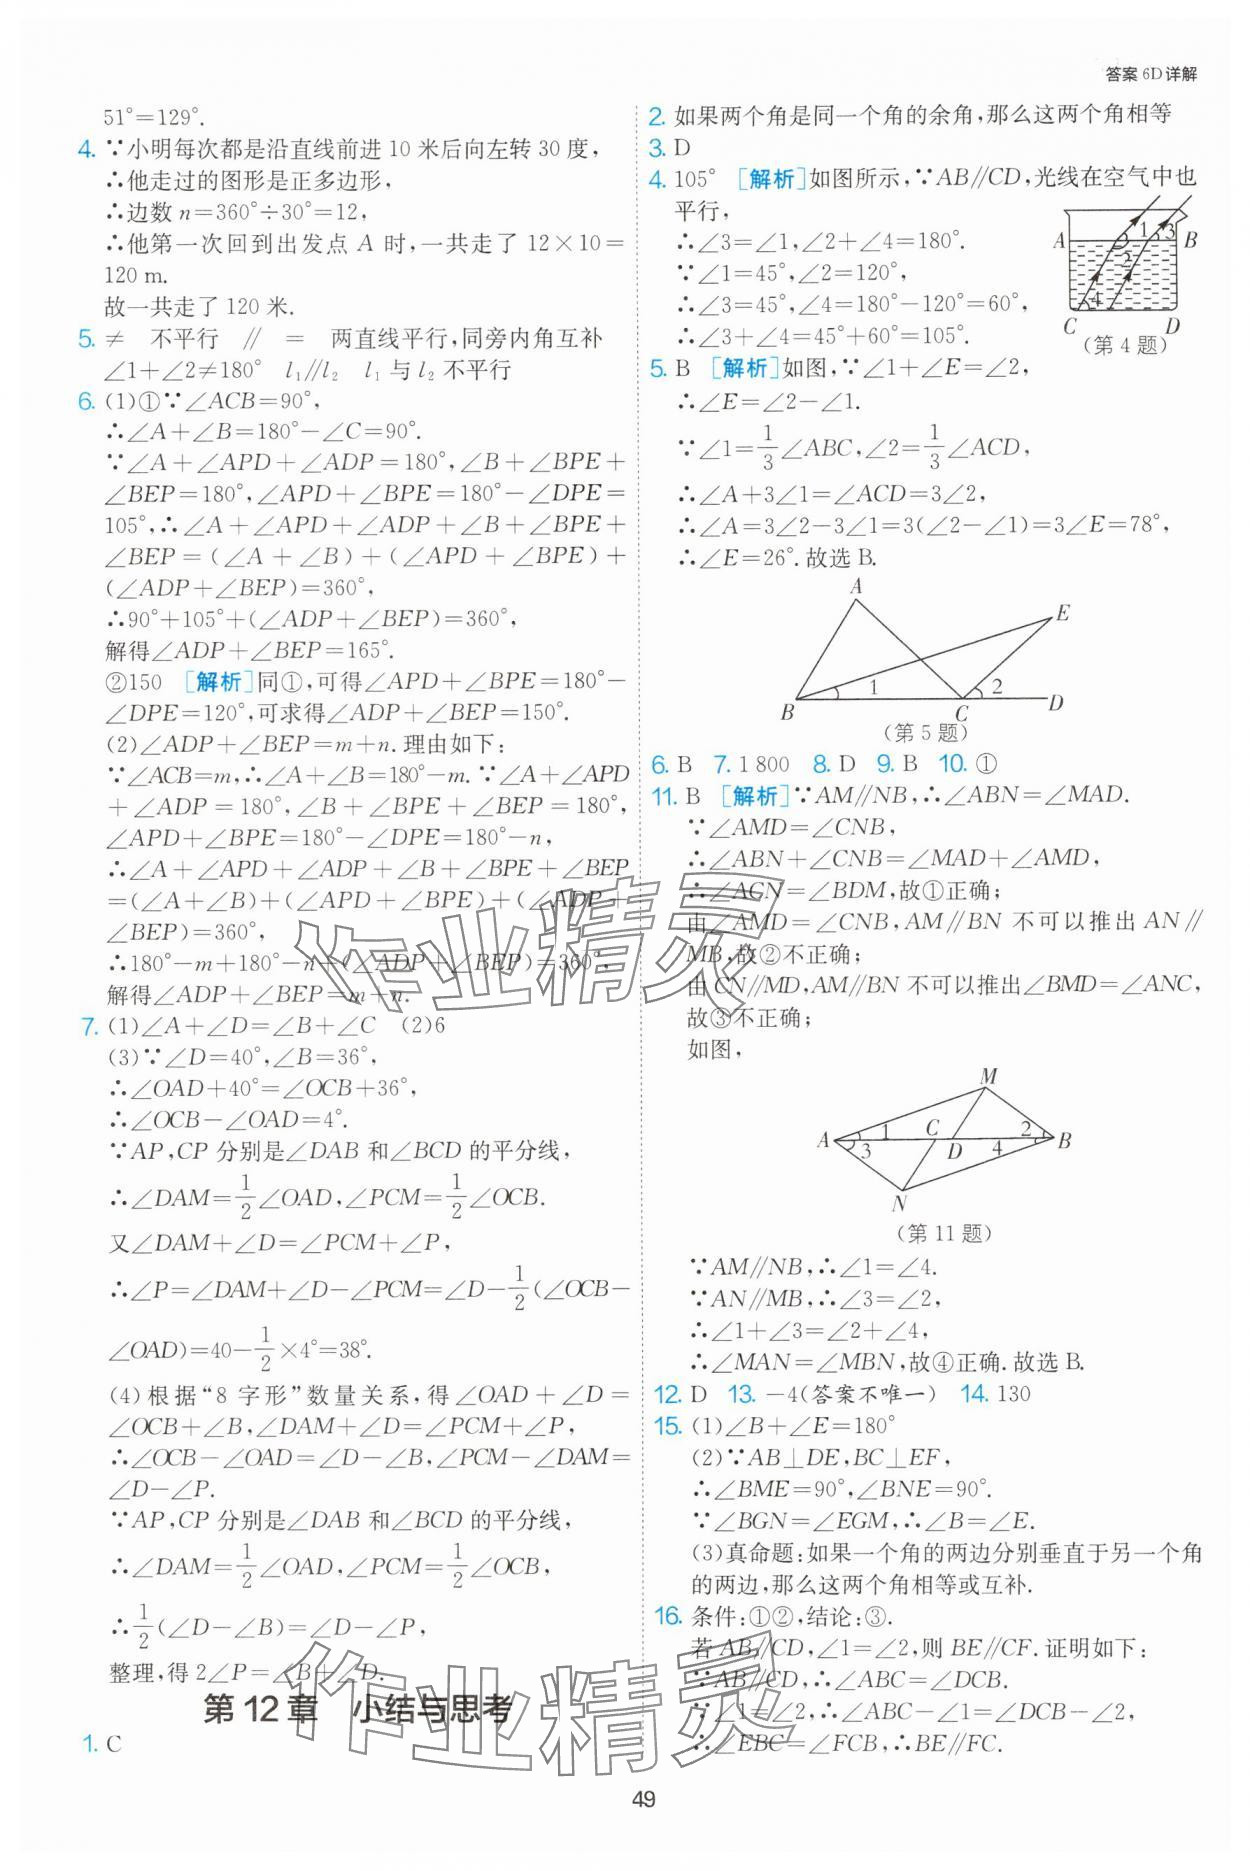 答案 6D详解
51°=129°.
4. ∵小明每次都是沿直线前进 10 米后向左转 30 度，
∴他走过的图形是正多边形，
∴边数 n=360°÷30°=12，
∴他第一次回到出发点 A 时，一共走了 12×10=
120 m.
故一共走了 120 米.
5. ≠ 不平行 ∥ = 两直线平行，同旁内角互补
∠1+∠2≠180° l₁∥l₂ l₁ 与 l₂ 不平行
6. (1)①∵∠ACB=90°，
∴∠A+∠B=180°-∠C=90°.
∵∠A+∠APD+∠ADP=180°，∠B+∠BPE+
∠BEP=180°，∠APD+∠BPE=180°-∠DPE=
105°，∴∠A+∠APD+∠ADP+∠B+∠BPE+
∠BEP=(∠A+∠B)+(∠APD+∠BPE)+
(∠ADP+∠BEP)=360°，
∴90°+105°+(∠ADP+∠BEP)=360°，
解得∠ADP+∠BEP=165°.
②150 [解析]同①，可得∠APD+∠BPE=180°-
∠DPE=120°，可求得∠ADP+∠BEP=150°.
(2)∠ADP+∠BEP=m+n.理由如下：
∵∠ACB=m，∴∠A+∠B=180°-m.∵∠A+∠APD
+∠ADP=180°，∠B+∠BPE+∠BEP=180°，
∠APD+∠BPE=180°-∠DPE=180°-n，
∴∠A+∠APD+∠ADP+∠B+∠BPE+∠BEP
=(∠A+∠B)+(∠APD+∠BPE)+(∠ADP+
∠BEP)=360°，
∴180°-m+180°-n+(∠ADP+∠BEP)=360°，
解得∠ADP+∠BEP=m+n.
7. (1)∠A+∠D=∠B+∠C (2)6
(3)∵∠D=40°，∠B=36°，
∴∠OAD+40°=∠OCB+36°，
∴∠OCB-∠OAD=4°.
∵AP，CP 分别是∠DAB 和∠BCD 的平分线，
∴∠DAM=1/2∠OAD，∠PCM=1/2∠OCB.
又∠DAM+∠D=∠PCM+∠P，
∴∠P=∠DAM+∠D-∠PCM=∠D-1/2(∠OCB-
∠OAD)=40-1/2×4°=38°.
(4)根据“8 字形”数量关系，得∠OAD+∠D=
∠OCB+∠B，∠DAM+∠D=∠PCM+∠P，
∴∠OCB-∠OAD=∠D-∠B，∠PCM-∠DAM=
∠D-∠P.
∵AP，CP 分别是∠DAB 和∠BCD 的平分线，
∴∠DAM=1/2∠OAD，∠PCM=1/2∠OCB，
∴1/2(∠D-∠B)=∠D-∠P，
整理，得 2∠P=∠B+∠D.
第 12 章 小结与思考
1. C
2. 如果两个角是同一个角的余角，那么这两个角相等
3. D
4. 105° [解析]如图所示，∵AB∥CD，光线在空气中也
平行，
∴∠3=∠1，∠2+∠4=180°.
∵∠1=45°，∠2=120°，
∴∠3=45°，∠4=180°-120°=60°，
∴∠3+∠4=45°+60°=105°.
A 1 3 B
2
4
C D
(第 4 题)
5. B [解析]如图，∵∠1+∠E=∠2，
∴∠E=∠2-∠1.
∵∠1=1/3∠ABC，∠2=1/3∠ACD，
∴∠A+3∠1=∠ACD=3∠2，
∴∠A=3∠2-3∠1=3(∠2-∠1)=3∠E=78°，
∴∠E=26°.故选 B.
A
E
1 2
B C D
(第 5 题)
6. B 7. 1 800 8. D 9. B 10. ①
11. B [解析]∵AM∥NB，∴∠ABN=∠MAD.
∵∠AMD=∠CNB，
∴∠ABN+∠CNB=∠MAD+∠AMD，
∴∠ACN=∠BDM，故①正确；
由∠AMD=∠CNB，AM∥BN 不可以推出 AN∥
MB，故②不正确；
由 CN∥MD，AM∥BN 不可以推出∠BMD=∠ANC，
故③不正确；
如图，
M
A 1 C 2 B
3 D 4
N
(第 11 题)
∵AM∥NB，∴∠1=∠4.
∵AN∥MB，∴∠3=∠2，
∴∠1+∠3=∠2+∠4，
∴∠MAN=∠MBN，故④正确.故选 B.
12. D 13. -4(答案不唯一) 14. 130
15. (1)∠B+∠E=180°
(2)∵AB⊥DE，BC⊥EF，
∴∠BME=90°，∠BNE=90°.
∵∠BGN=∠EGM，∴∠B=∠E.
(3)真命题：如果一个角的两边分别垂直于另一个角
的两边，那么这两个角相等或互补.
16. 条件：①②，结论：③.
若 AB∥CD，∠1=∠2，则 BE∥CF.证明如下：
∵AB∥CD，∴∠ABC=∠DCB.
∵∠1=∠2，∴∠ABC-∠1=∠DCB-∠2，
∴∠EBC=∠FCB，∴BE∥FC.
作业精灵
作业精灵
49